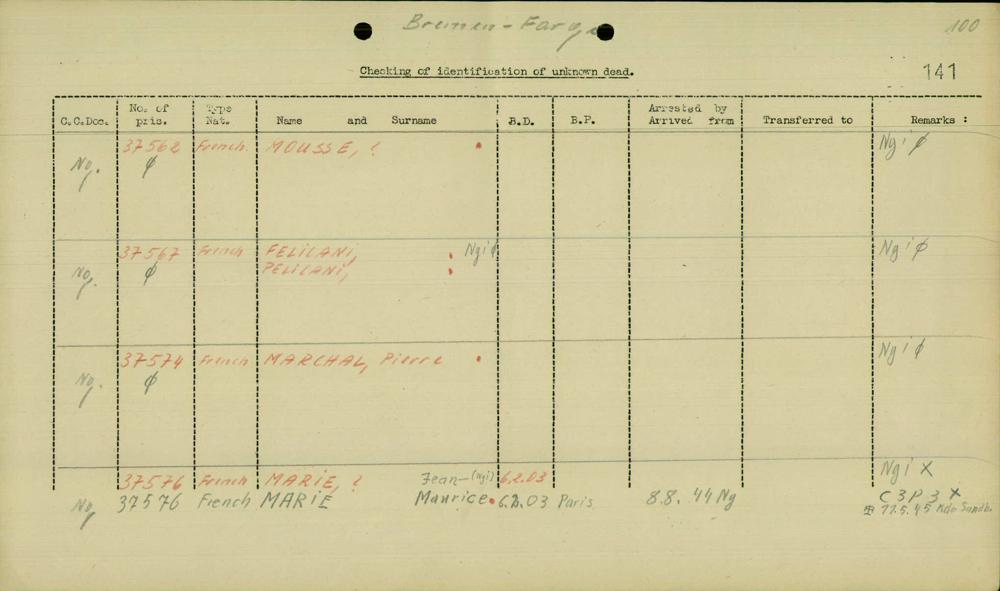 Bremen-Farge
100
Checking of identification of unknown dead.
141
C.C.Doc. No. of pris. Type Nat. Name and Surname B.D. B.P. Arrested by Arrived from Transferred to Remarks :
37562 French. MOUSSE, ? Ngi ϕ
Ng. ϕ
37567 French FELICANI, Ngi ϕ Ngi ϕ
Ng. ϕ PELICANI,
37574 French MARCHAL, Pierre Ngi ϕ
Ng. ϕ
37576 French MARIE, ? Jean-(ngi) 6.2.03 Ngi X
Ng 37576 French MARIE Maurice 6.2.03 Paris 8.8.44 Ng C3P3 X
11.5.45 Kdo Sandb.